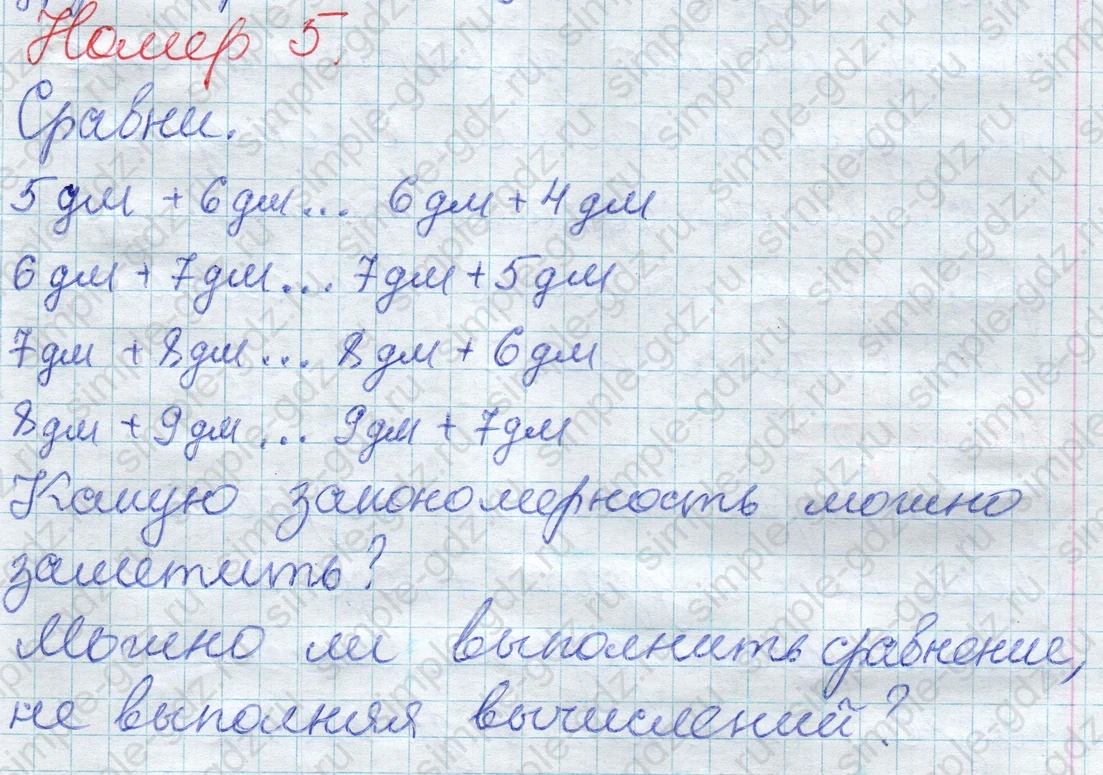 Номер 5.
Сравни.
5 дм + 6 дм ... 6 дм + 4 дм
6 дм + 7 дм ... 7 дм + 5 дм
7 дм + 8 дм ... 8 дм + 6 дм
8 дм + 9 дм ... 9 дм + 7 дм
Какую закономерность можно
заметить?
Можно ли выполнить сравнение,
не выполняя вычислений?
simple-gdz.ru